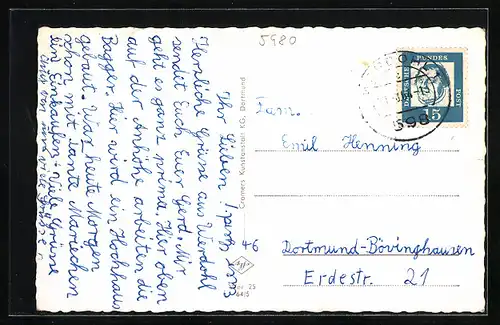 5980
Ihr Lieben!
Herzliche Grüsse aus Werdohl
sendet Euch Euer Gerd. Mir
geht es ganz prima. Hier oben
auf der Anhöhe arbeiten die
Bagger. Hier wird ein Hochhaus
gebaut. War heute Morgen
schon mit Tante Mariechen
ein Einkaufen. Viele Grüsse
auch von
viele Grüsse
Cramers Kunstanstalt KG, Dortmund
DEUTSCHE BUNDESPOST
15
598
Fam.
Emil Henning
46
Dortmund-Bövinghausen
Erdestr. 21